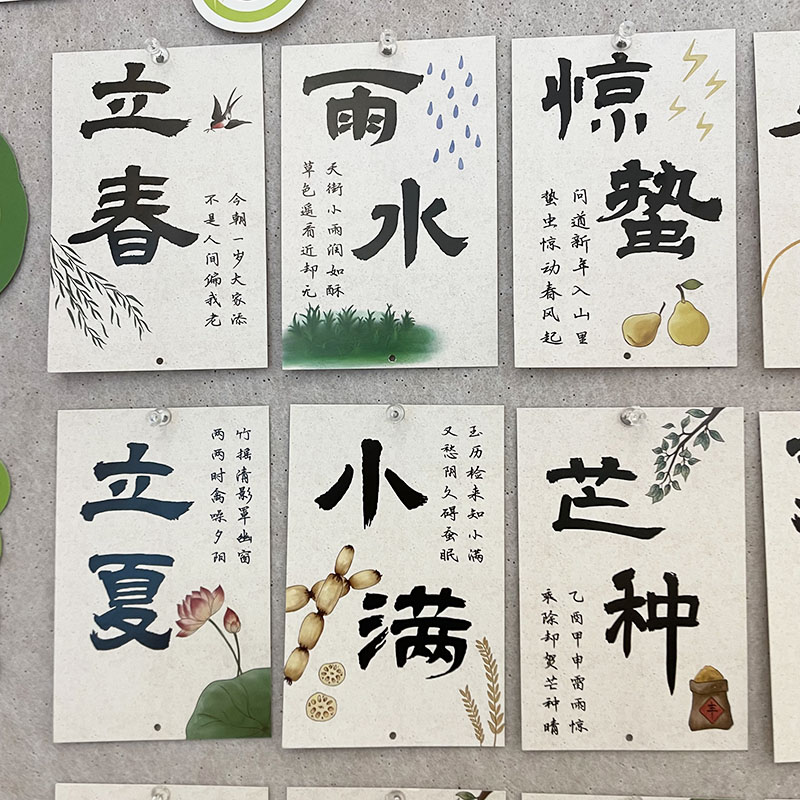 立春
今朝一岁大家添
不是人间偏我老
雨水
天街小雨润如酥
草色遥看近却无
惊蛰
问道新年入山里
蛰虫惊动春风起
立夏
竹摇清影罩幽窗
两两时禽噪夕阳
小满
玉历检来知小满
又愁阴久碍蚕眠
芒种
乙酉甲申雷雨惊
乘除却贺芒种晴
丰